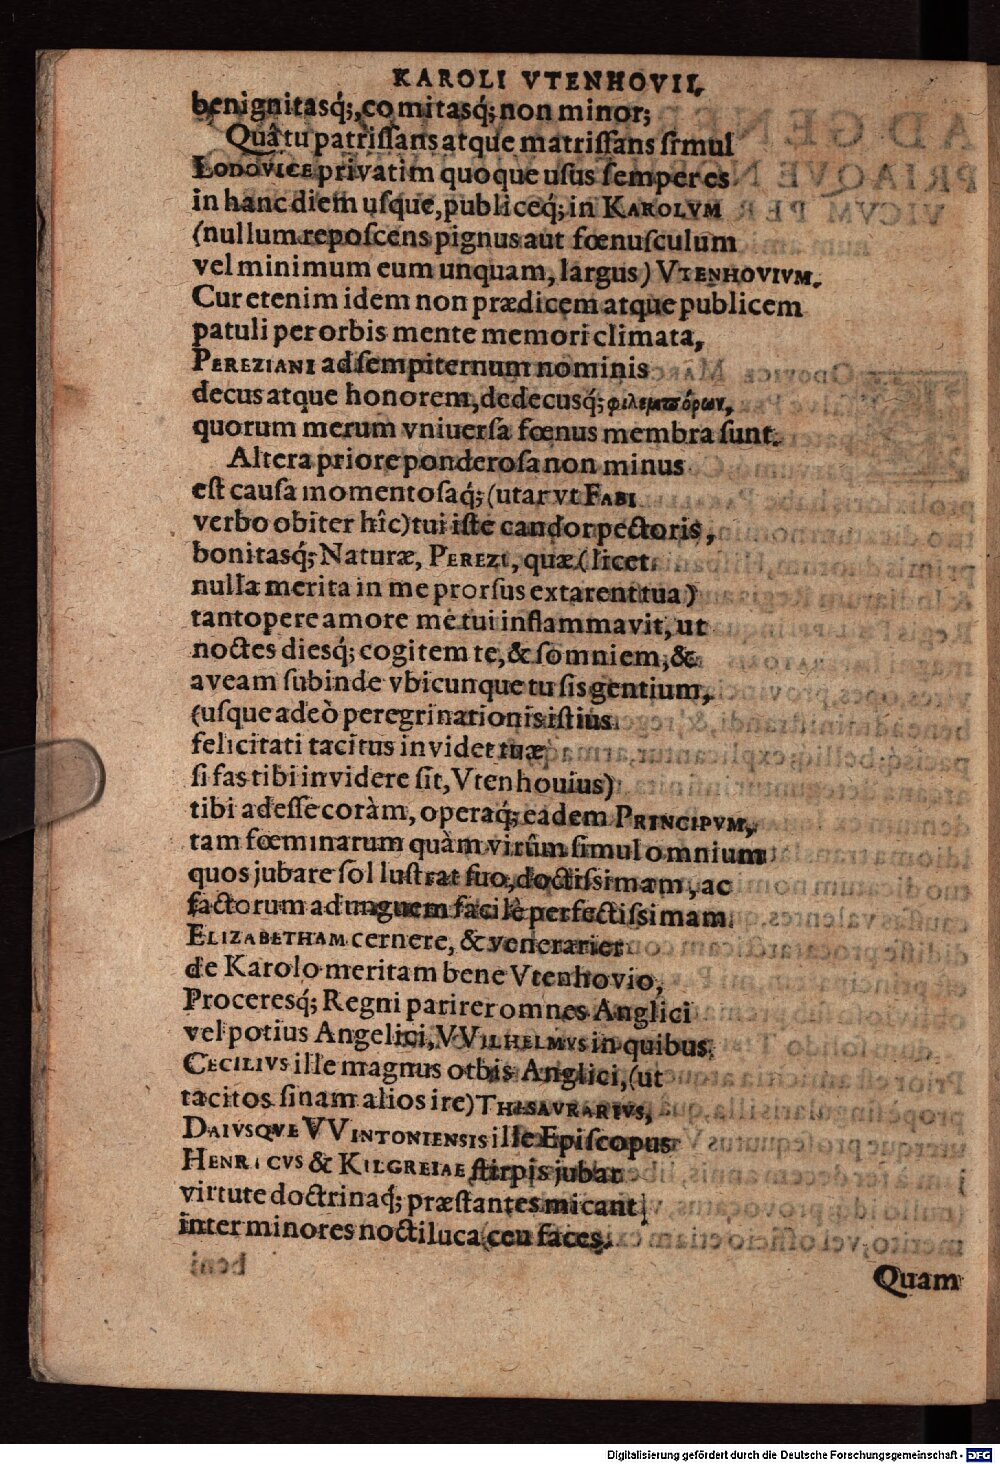 KAROLI VTENHOVII,
benignitasq́;, comitasq́; non minor;
Quâ tu patrissans atque matrissans sımul
LODOVICE privatim quoque usus semper es
in hanc diem usque, publiceq́; in KAROLVM
(nullum reposcens pignus aut fœnusculum
vel minimum eum unquam, largus) VTENHOVIVM.
Cur etenim idem non prædicem atque publicem
patuli per orbis mente memori climata,
PEREZIANI ad sempiternum nominis
decus atque honorem, dedecusq́;
quorum merum vniuersa fœnus membra sunt.
Altera priore ponderosa non minus
est causa momentosaq́; (utar vt FABI
verbo obiter hîc) tui iste candor pectoris,
bonitasq́; Naturæ, PEREZI, quæ (licet
nulla merita in me prorsus extarent tua)
tantopere amore me tui inflammavit, ut
noctes diesq́; cogitem te, & somniem, &
aveam subinde vbicunque tu sis gentium,
(usque adeò peregrinationis istius
felicitati tacitus invidet tuæ
si fas tibi invidere sit, Vtenhouius)
tibi adesse coràm, operaq́; eadem PRINCIPVM,
tam fœminarum quàm virûm simul omnium
quos jubare sol lustrat suo, doctissimam, ac
factorum ad unguem facilè perfectissimam
ELIZABETHAM cernere, & venerarier
de Karolo meritam bene Vtenhovio,
Proceresq́; Regni pariter omnes Anglici
vel potius Angelici, VVILHELMVS in quibus
CECILIVS ille magnus orbis Anglici, (ut
tacitos sinam alios ire) THESAVRARIVS,
DAIVSQVE VVINTONIENSIS ille Episcopus
HENRICVS & KILGREIAE stirpis jubar
virtute doctrinaq́; præstantes micant
inter minores noctiluca ceu faces.
Quam
Digitalisierung gefördert durch die Deutsche Forschungsgemeinschaft - DFG